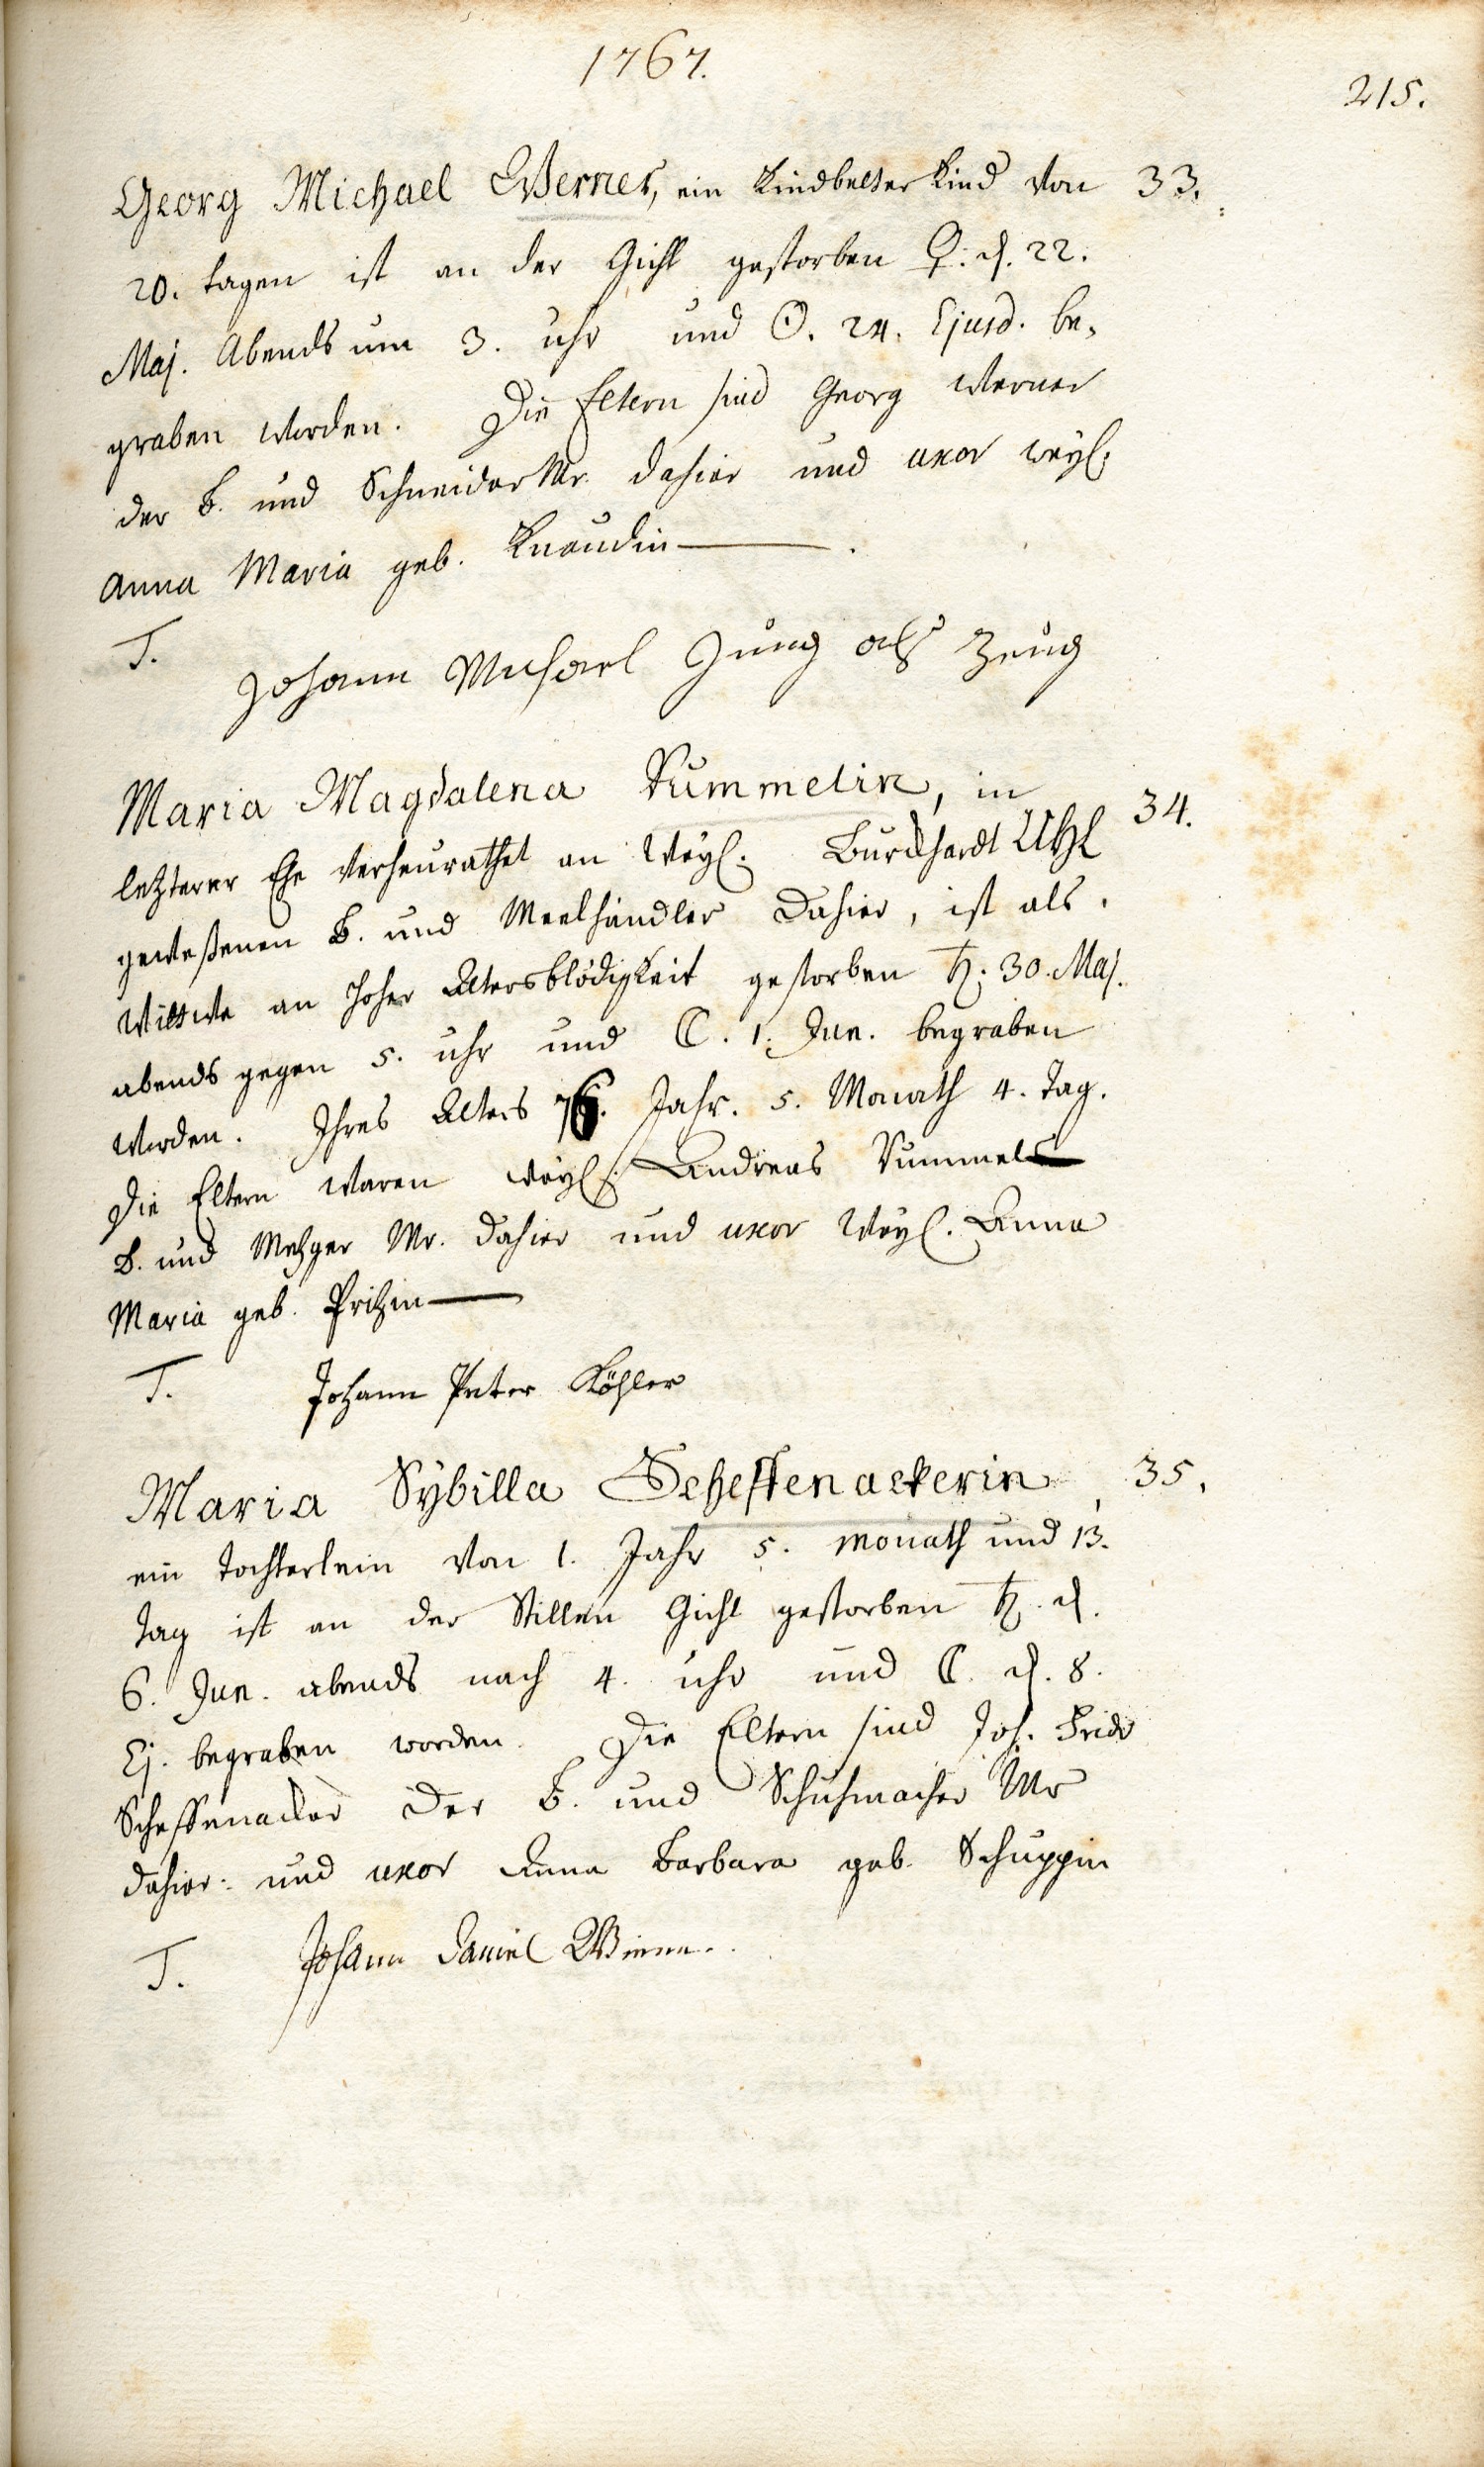 1767.
215.
Georg Michael Werner, ein Kindbetter Kind von 33.
20. tagen ist an der Gicht gestorben ♀. d. 22.
Maj. Abends um 3. uhr und ☉. 24. Ejusd. be-
graben worden. Die Eltern sind Georg Werner
der B. und Schneider Mr. dahier und uxor weyl.
Anna Maria geb. Knaudin
T. Johann Michael Jung als Zeug
Maria Magdalena Rummelin, in
34.
letzterer Ehe verheurathet an weyl. Burckhardt Uhl
geweßenen B. und Meelhändler dahier, ist als
Wittwe an hoher Altersblödigkeit gestorben ♄. 30. Maj.
abends gegen 5. uhr und ☾. 1. Jun. begraben
worden. Ihres Alters 76. Jahr. 5. Monath 4. Tag.
Die Eltern waren weyl. Andreas Rummel
B. und Metzger Mr. dahier und uxor weyl. Anna
Maria geb. Pritzin
T. Johann Peter Köhler
Maria Sybilla Scheffenackerin, 35.
ein Tochterlein von 1. Jahr 5. Monath und 13.
Tag ist an der Stillen Gicht gestorben ♄. d.
6. Jun. abends nach 4. uhr und ☾. d. 8.
Ej. begraben worden. Die Eltern sind Joh. Fridr
Scheffenacker der B. und Schuhmacher Mr
dahier und uxor Anna Barbara geb. Schuppin
T. Johann Daniel